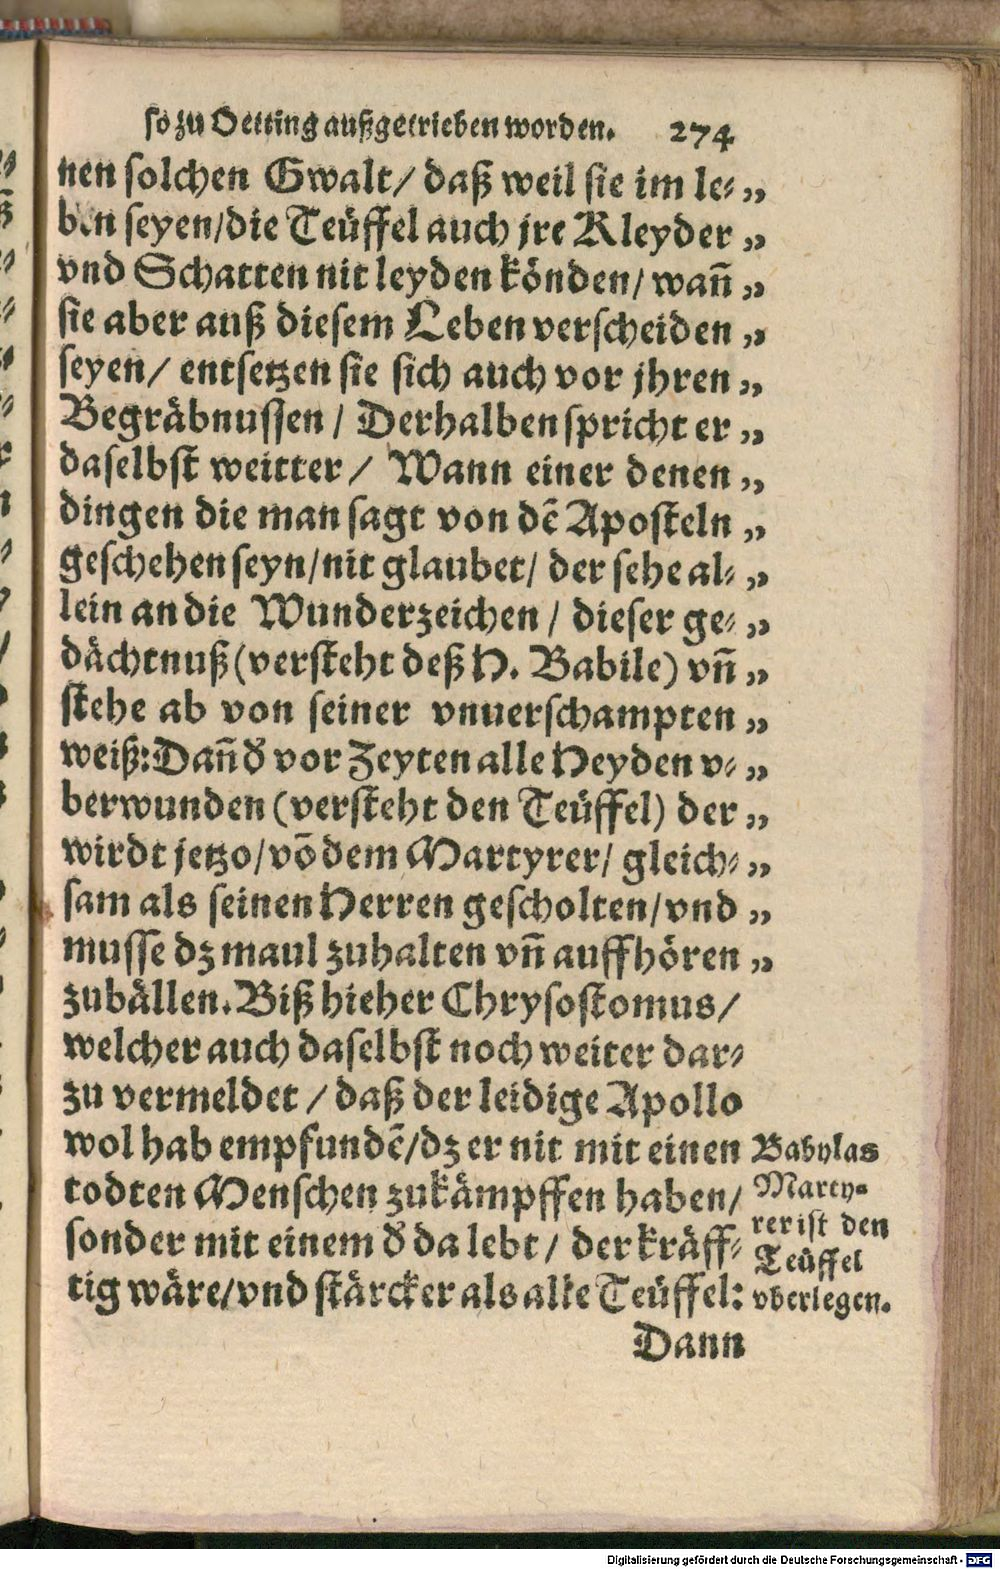 so zu Oetting außgetrieben worden. 274
nen solchen Gwalt/ daß weil sie im le- „
ben seyen/die Teüffel auch jre Kleyder „
vnd Schatten nit leyden könden/ wañ „
sie aber auß diesem Leben verscheiden „
seyen/ entsetzen sie sich auch vor jhren „
Begräbnussen/ Derhalben spricht er „
daselbst weitter/ Wann einer denen „
dingen die man sagt von dẽ Aposteln „
geschehen seyn/nit glaubet/ der sehe al- „
lein an die Wunderzeichen/ dieser ge- „
dächtnuß (versteht deß H. Babile) vñ „
stehe ab von seiner vnuerschampten „
weiß: Dañ d̾ vor Zeyten alle Heyden v- „
berwunden (versteht den Teüffel) der „
wirdt jetzo/võ dem Martyrer/ gleich- „
sam als seinen Herren gescholten/vnd „
musse dz maul zuhalten vñ auffhören „
zubällen. Biß hieher Chrysostomus/
welcher auch daselbst noch weiter dar-
zu vermeldet/ daß der leidige Apollo
wol hab empfundẽ/dz er nit mit einen
todten Menschen zukämpffen haben/
sonder mit einem d̾ da lebt/ der kräff-
tig wäre/vnd stärcker als alle Teüffel:
Dann
Babylas
Marty-
rer ist den
Teüffel
vberlegen.
Digitalisierung gefördert durch die Deutsche Forschungsgemeinschaft - DFG